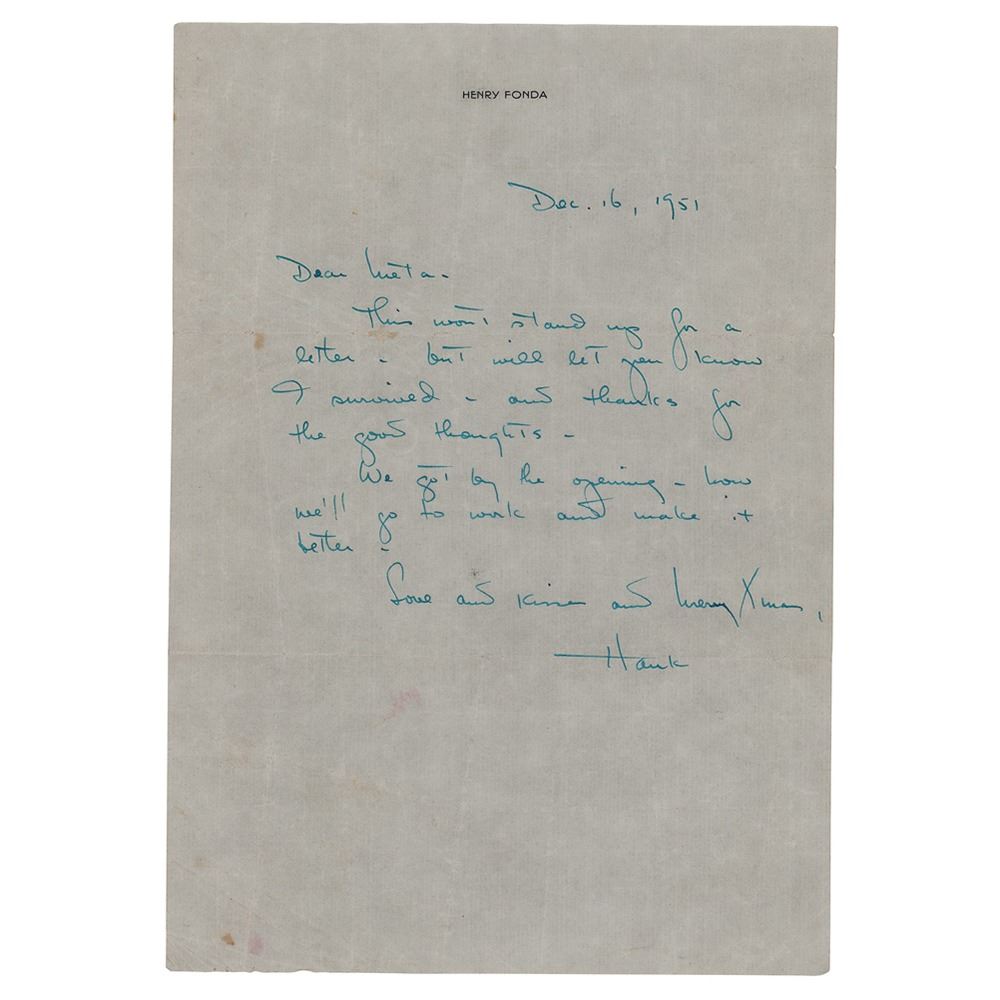 HENRY FONDA
Dec. 16, 1951
Dear Meta -
This won't stand up for a
letter - but will let you know
I survived - and thanks for
the good thoughts -
We got by the opening - now
we'll go to work and make it
better -
Love and kisses and Merry Xmas,
Hank